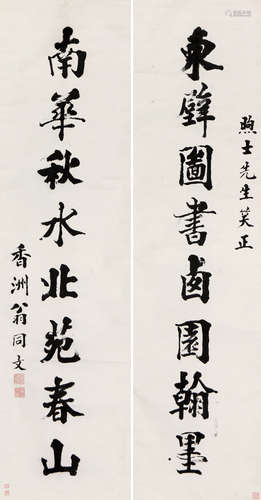 東壁圖書卤園翰墨
煦士先生笑正
南華秋水北苑春山
香洲翁同文